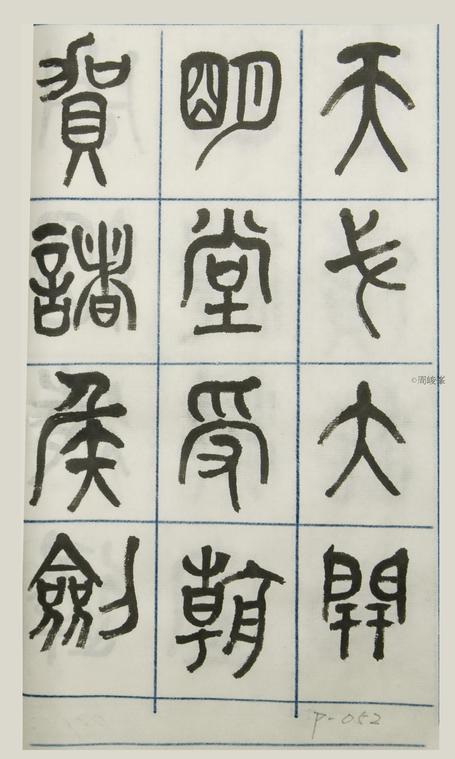 天戈大開
明堂受朝
賀諸侯劍
P-052
©周峻峯